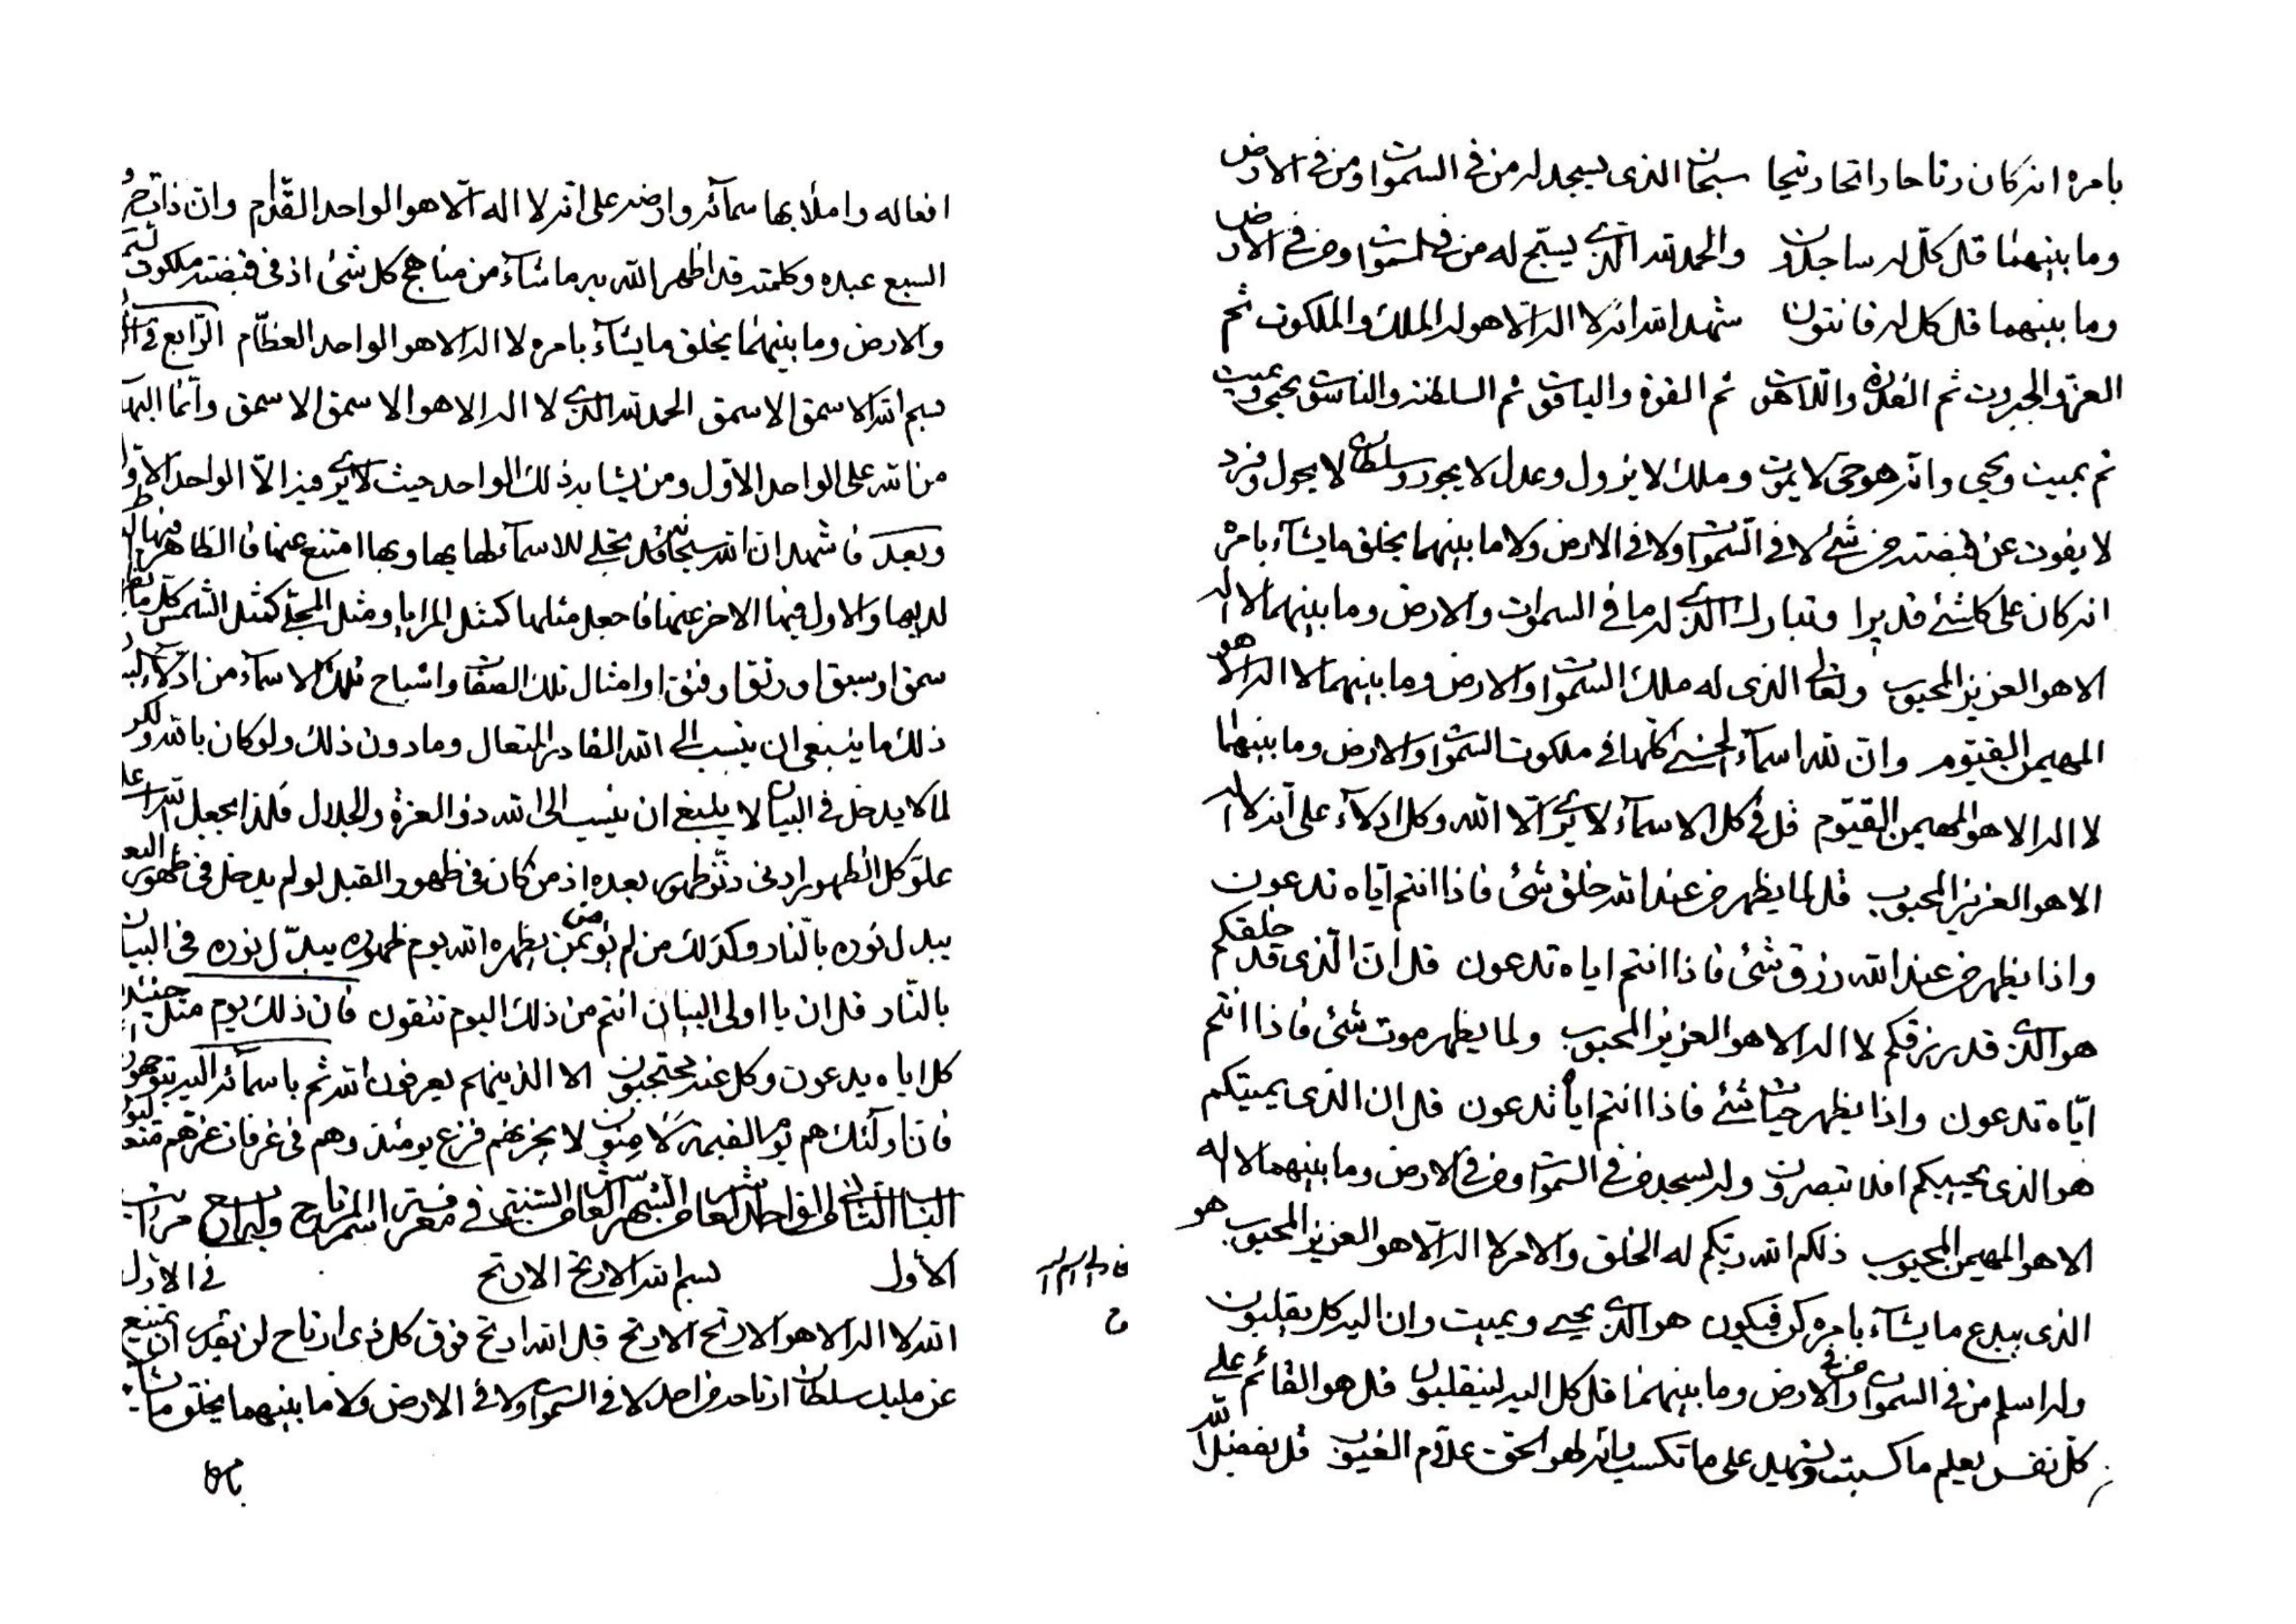 بامره انه كان رتاحا راتحا رتيحا سبحان الذى يسجد له من فى السموات ومن فى الارض
وما بينهما قل كل له ساجدون والحمد لله الذى يسبح له من فى السموات ومن فى الارض
وما بينهما قل كل له قانتون شهد الله انه لا اله الا هو له الملك والملكوت ثم
العز والجبروت ثم القدرة واللاهوت ثم القوة والياقوت ثم السلطنة والناسوت يحيى ويميت
ثم يميت ويحيى وانه هو حى لا يموت وملك لا يزول وعدل لا يجور وسلطان لا يحول وفرد
لا يفوت عن قبضته من شئ لا فى السموات ولا فى الارض ولا ما بينهما يخلق ما يشآء بامره
انه كان على كلشئ قديرا وتبارك الذى له ما فى السموات والارض وما بينهما لا اله
الا هو العزيز المحبوب وتعالى الذى له ملك السموات والارض وما بينهما لا اله الا هو
المهيمن القيوم وان لله اسمآء الحسنى كلها فى ملكوت السموات والارض وما بينهما
لا اله الا هو المهيمن القيوم قل فى كل الاسمآء لا يرى الا الله وكل ادلآء على انه لا اله
الا هو العزيز المحبوب قل لما يظهر من عند الله خلق شئ فاذا انتم اياه تدعون
واذا يظهر من عند الله رزق شئ فاذا انتم اياه تدعون قل ان الذى قد خلقكم
هو الذى قد رزقكم لا اله الا هو العزيز المحبوب ولما يظهر موت شئ فاذا انتم
اياه تدعون واذا يظهر حيات شئ فاذا انتم اياه تدعون قل ان الذى يميتكم
هو الذى يحييكم افلا تبصرون وله يسجد من فى السموات ومن فى الارض وما بينهما لا اله
الا هو المهيمن المحبوب ذلكم الله ربكم له الخلق والامر لا اله الا هو العزيز المحبوب هو
الذى يبدع ما يشآء بامره كن فيكون هو الذى يحيى ويميت وان اليه كل يقلبون
وله اسلم من فى السموات ومن فى الارض وما بينهما قل كل اليه لينقلبون قل هو القائم على
كل نفس يعلم ما كسبت وشهيد على ما تكسب انه لهو الحق علام الغيوب قل بفضل الله
افعاله واملأ بها سمآئه وارضه على انه لا اله الا هو الواحد القدام وان ذات حروف
السبع عبده وكلمته قد اظهر الله به ما شآء من مناهج كل شئ اذ فى قبضته ملكوت السموات
والارض وما بينهما يخلق ما يشآء بامره لا اله الا هو الواحد العظام الرابع فى
بسم الله الاسمق الاسمق الحمد لله الذى لا اله الا هو الاسمق الاسمق وانما البهآء
من الله على الواحد الاول ومن يشابه ذلك الواحد حيث لا يرى فيه الا الواحد الاول
وبعد فاشهد ان الله سبحانه قد تجلى للاسمآء لها بها وبها امتنع عنها فان الظاهر فيها
لديها والاول فيها الاخر عنها فاجعل مثلها كمثل المرايا ومثل المجلى كمثل الشمس كلما
سمق او سبق او رتق او فتق او امثال تلك الصفات واشباح تلك الاسمآء من ادلآء
ذلك ما ينبغى ان ينسب الى الله القادر المتعال وما دون ذلك ولو كان بالله ولكن
لما لا يدخل فى البيان لا ينبغى ان ينسب الى الله ذو العزة والجلال فلذا يجعل الله
علو كل الظهور ادنى دنو ظهور بعده اذ من كان فى ظهور القبل لو لم يدخل فى ظهور البعد
يبدل نوره بالنار وكذلك من لم يؤمن بمن يظهره الله يوم ظهوره يبدل نوره فى البيان
بالنار قل ان يا اولى البيان انتم من ذلك اليوم تتقون فان ذلك يوم مثل حينئذ
كل اياه يدعون وكل عنه محتجبون الا الذينهم يعرفون الله ثم باسمآئه اليه يتوجهون
فان اولئك هم يوم القيمة لآمنون لا يحزنهم فزع يومئذ وهم فى غرفات عزهم
الباب الثانى الواحد العاشر الشهر العاشر السنة فى معرفة اسم الرتاح وله اربع مراتب
الاول بسم الله الارتح الارتح فى الاول
الله لا اله الا هو الارتح الارتح قل الله ارتح فوق كل ذى ارتاح لن يقدر ان يمتنع
عن مليك سلطان ارتاحه من احد لا فى السموات ولا فى الارض ولا ما بينهما يخلق ما يشآء
بامره